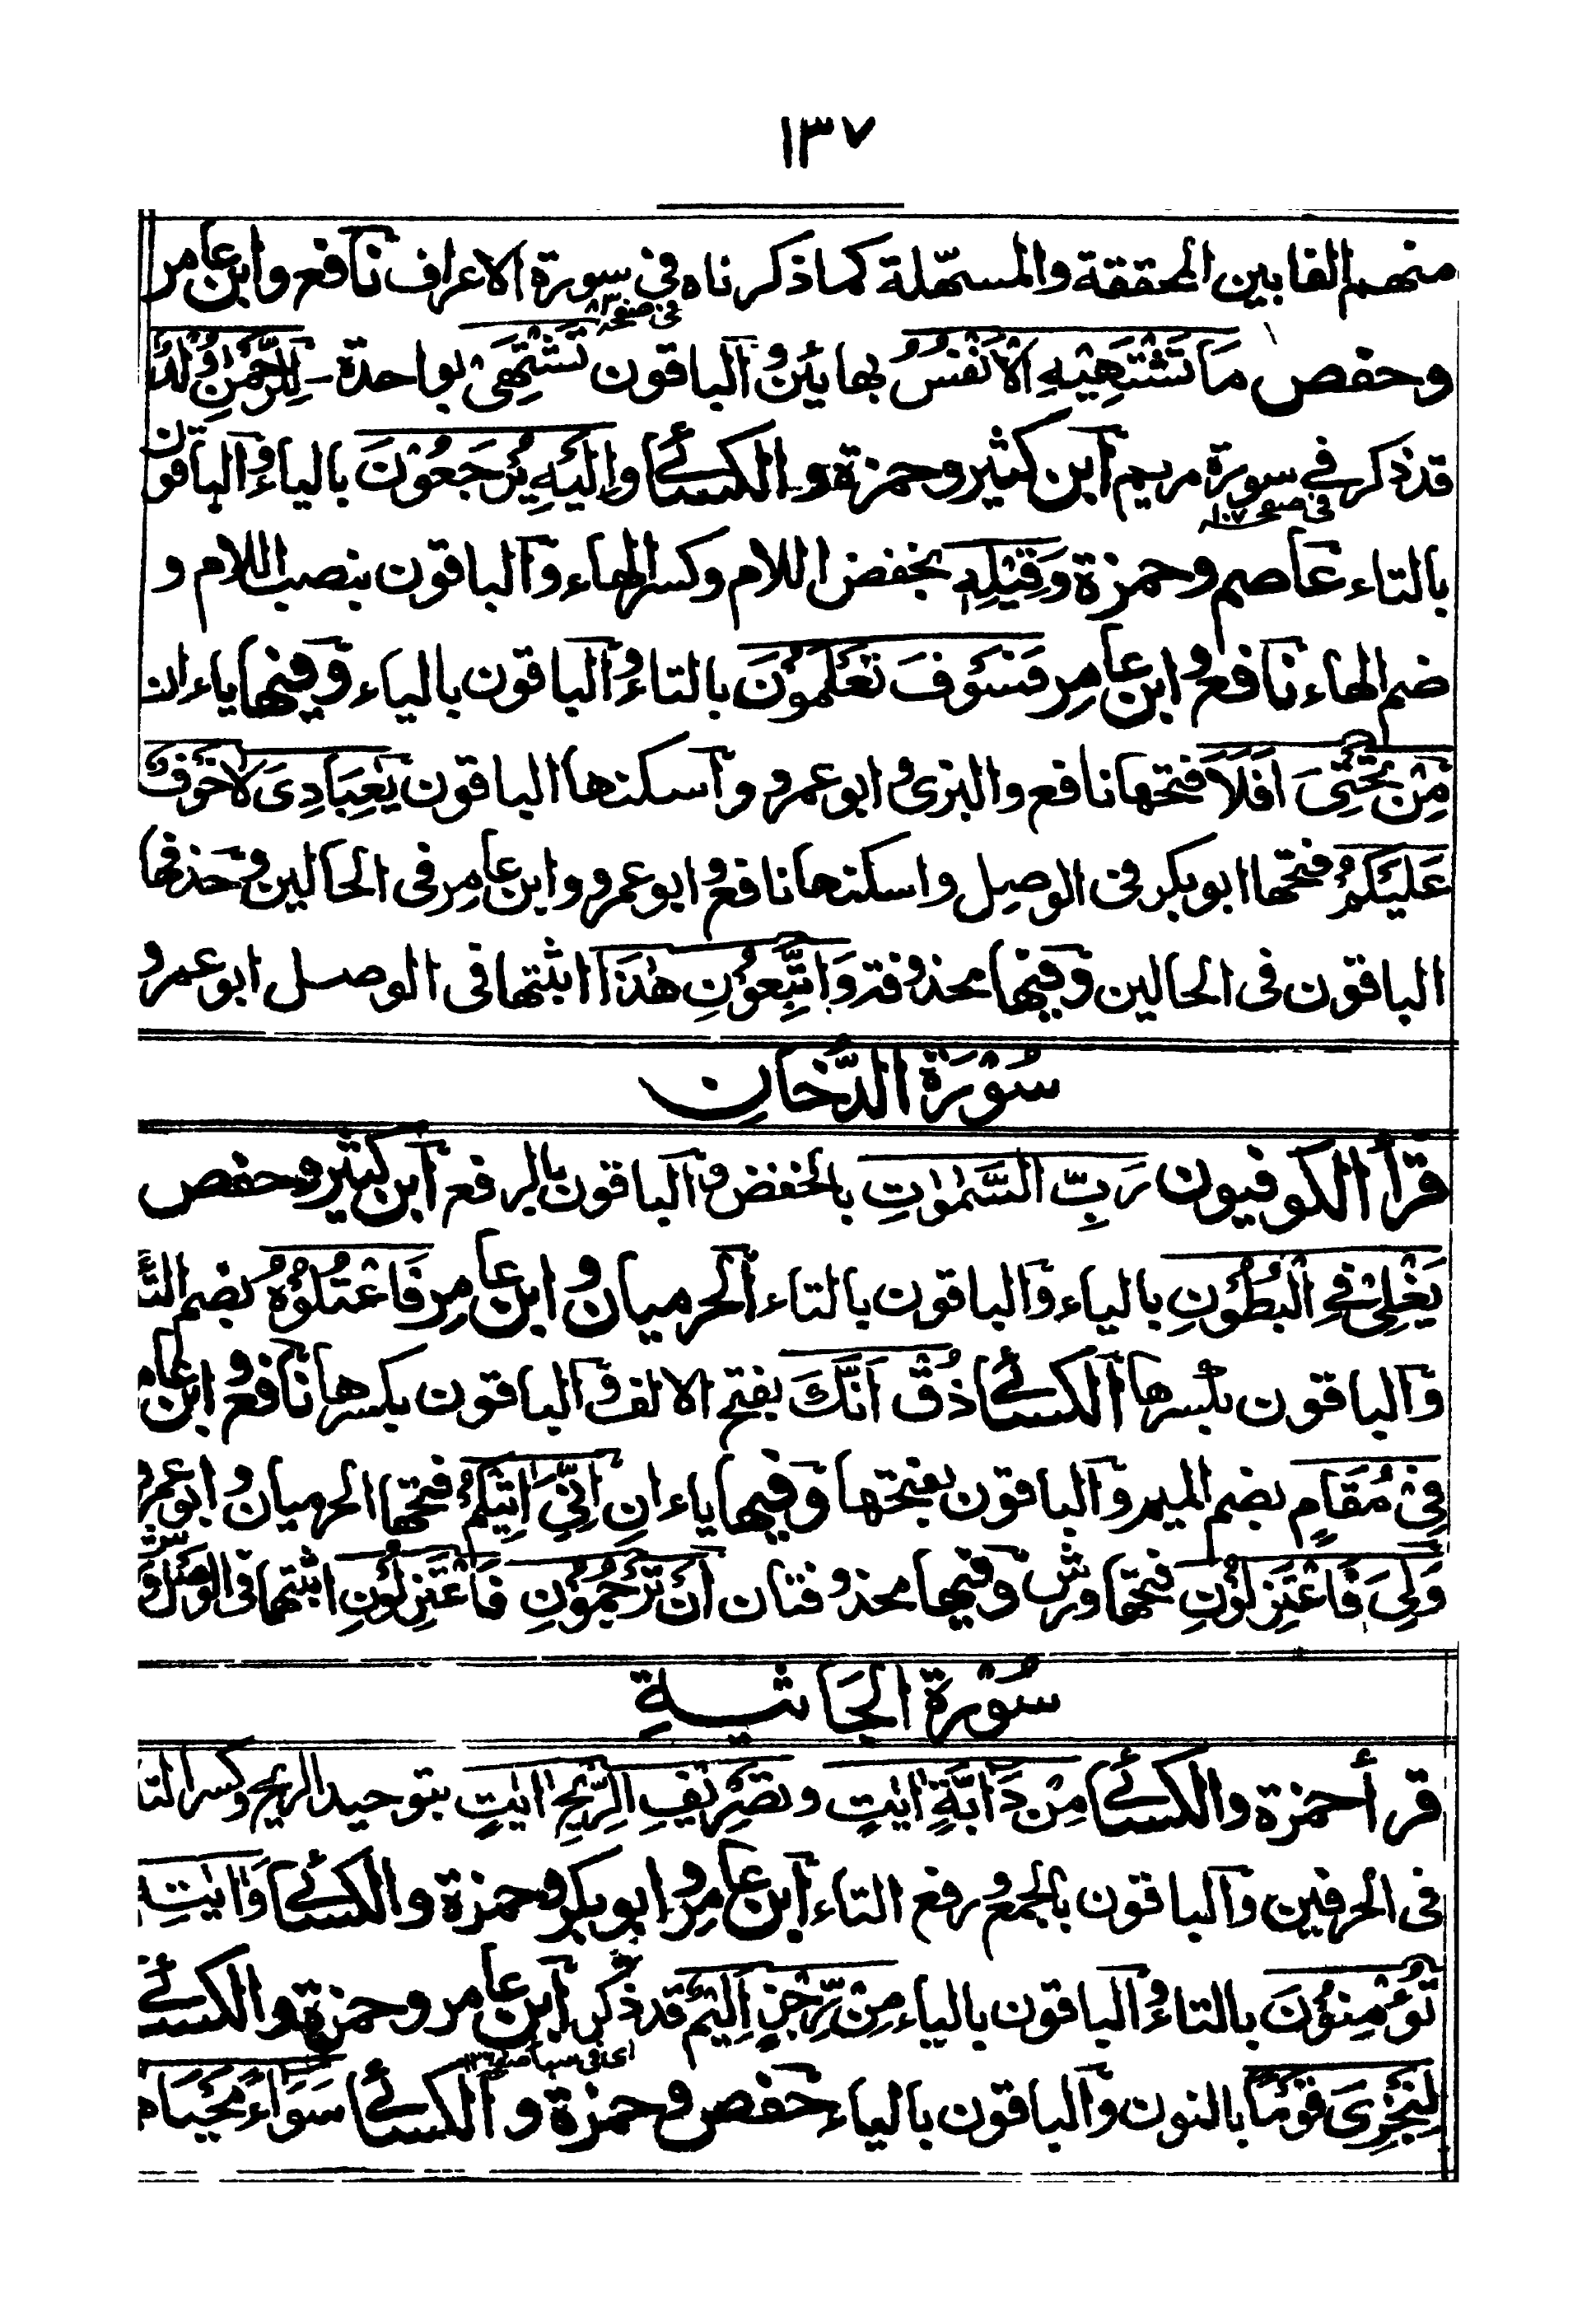 ١٣٧
منهم الفا بين المحققة والمسهّلة كما ذكرناه فى سورة الاعراف نافع وابن عامر
فى صفحه ٨٣
وحفص مَا تَشْتَهِيْهِ الْاَنْفُسُ بهائين والباقون تَشْتَهِىْ بواحدة - لِلرَّحْمٰنِ وُلْدٌ
قد ذكر فے سورة مريم ابن كثير وحمزة والكسائے وَاِلَيْهِ يُرْجَعُوْنَ بالياء والباقون
فى صفحه ١٠٧
بالتاء عاصم وحمزة وَقِيْلِهٖ بخفض اللام وكسر الهاء والباقون بنصب اللام و
ضم الهاء نافع وابن عامر فَسَوْفَ تَعْلَمُوْنَ بالتاء والباقون بالياء وفيها ياءان
مِنْ تَحْتِىْ اَفَلَا فتحها نافع والبزى وابو عمرو واسكنها الباقون يٰعِبَادِىَ لَا خَوْفٌ
عَلَيْكُمْ فتحها ابو بكر فى الوصل واسكنها نافع وابو عمرو وابن عامر فى الحالين وحذفها
الباقون فى الحالين وفيها محذوفة وَاتَّبِعُوْنِ هٰذَا اثبتها فى الوصل ابو عمرو
سُوْرَةُ الدُّخَانِ
قرأ الكوفيون رَبِّ السَّمٰوٰتِ بالخفض والباقون بالرفع ابن كثير وحفص
يَغْلِىْ فِے الْبُطُوْنِ بالياء والباقون بالتاء الحرميان وابن عامر فَاعْتُلُوْهُ بضم التاء
والباقون بكسرها الكسائے ذُقْ اَنَّكَ بفتح الالف والباقون بكسرها نافع وابن عامر
فِىْ مُقَامٍ بضم الميم والباقون بفتحها وفيها ياءان اِنِّىْ اٰتِيْكُمْ فتحها الحرميان وابو عمرو
وَلِىَ فَاعْتَزِلُوْنِ فتحها ورش وفيها محذوفتان اَنْ تَرْجُمُوْنِ فَاعْتَزِلُوْنِ اثبتها فى الوصل ورش
سُوْرَةُ الْجَاثِيَةِ
قرأ حمزة والكسائے مِنْ دَآبَّةٍ اٰيٰتٍ وتَصْرِيْفِ الرِّيْحِ اٰيٰتٍ بتوحيد الريح وكسر التا
فى الحرفين والباقون بالجمع ورفع التاء ابن عامر وابو بكر وحمزة والكسائے وَاٰيٰتِهٖ
تُوْمِنُوْنَ بالتاء والباقون بالياء مِنْ رِّجْزٍ اَلِيْمٌ قد ذكر ابن عامر وحمزة والكسائے
اى فى سبا صفحه
لِنَجْزِىَ قَوْمًا بالنون والباقون بالياء حفص وحمزة والكسائے سَوَآءً مَّحْيَاهُمْ